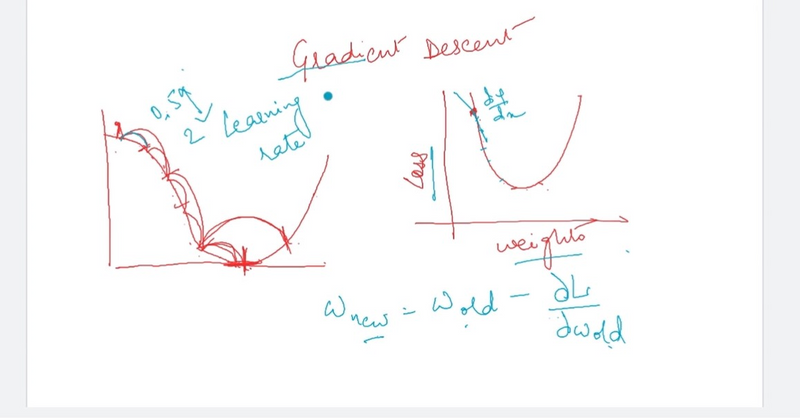 Gradient Descent
0.5
2
Learning
rate
dy
dx
Loss
weights
Wnew = Wold - ∂L
∂wold